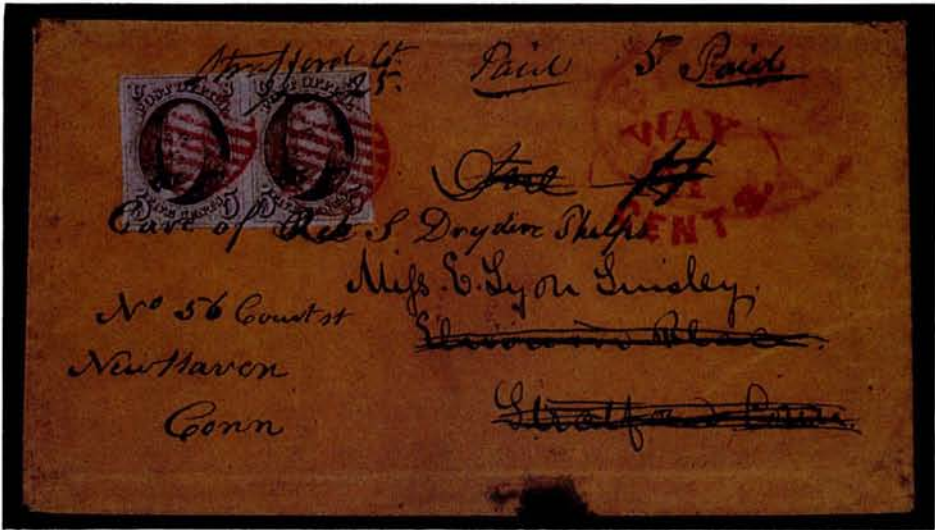 Stratford Ct. Paid 5 Paid
25.
POST OFFICE POST OFFICE
WAY
CENTS
Care of Rev S Dryden Phelps
Miss. E. Lyon Linsley.
No 56 Court st
New Haven
Conn
Stratford Conn.